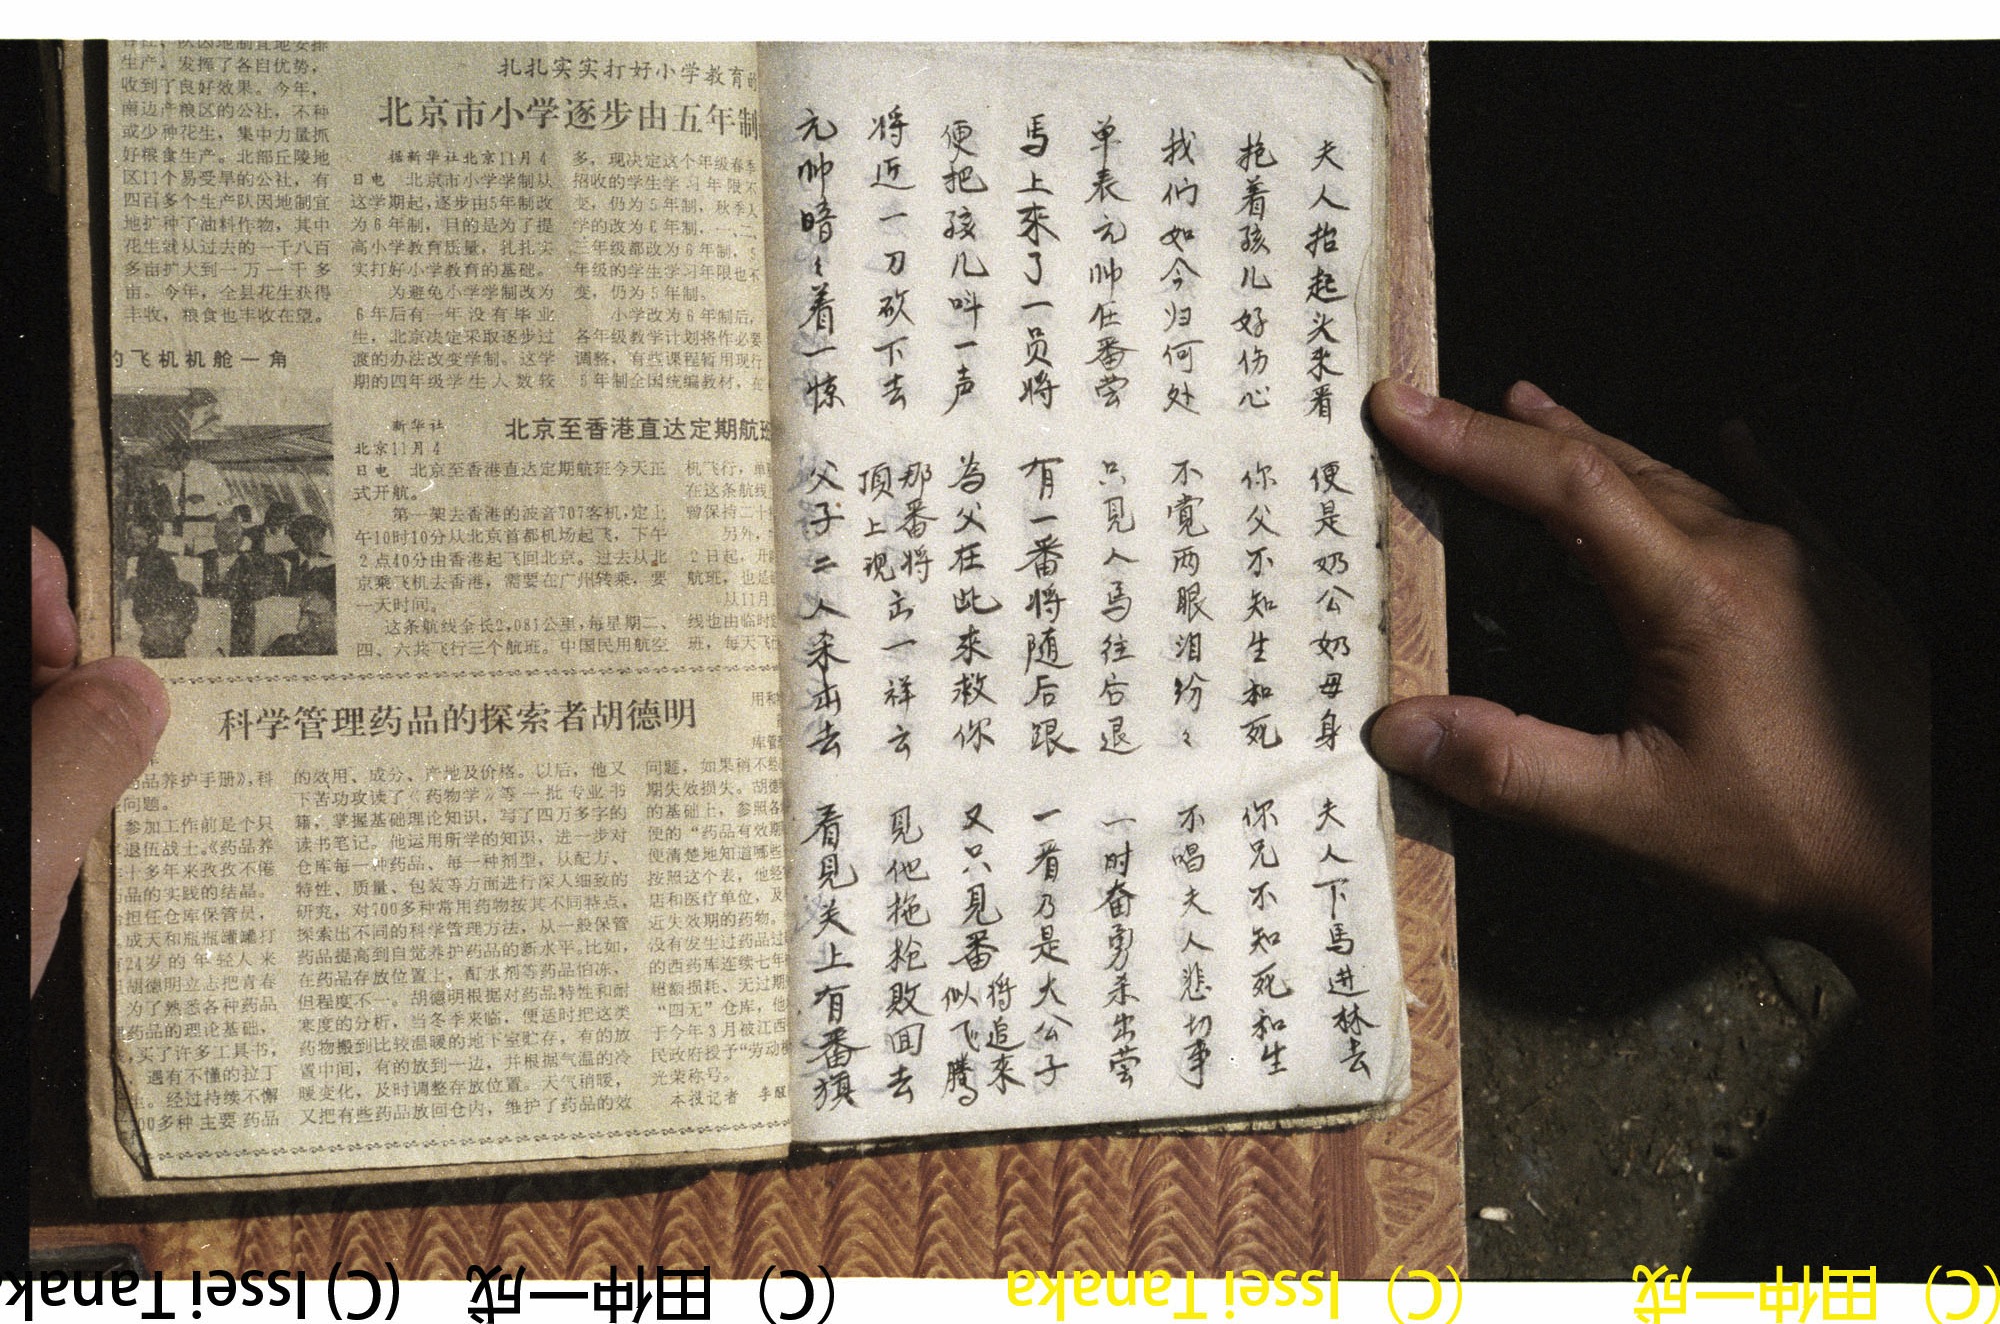 生产。发挥了各自优势，
收到了良好效果。今年，
南边产粮区的公社，不种
或少种花生，集中力量抓
好粮食生产。北部丘陵地
区11个易受旱的公社，有
四百多个生产队因地制宜
地扩种了油料作物，其中
花生就从过去的一千八百
多亩扩大到一万一千多
亩。今年，全县花生获得
丰收，粮食也丰收在望。
的飞机机舱一角
扎扎实实打好小学教育的
北京市小学逐步由五年制
据新华社北京11月4
日电 北京市小学学制从
这学期起，逐步由5年制改
为6年制，目的是为了提
高小学教育质量，扎扎实
实打好小学教育的基础。
为避免小学学制改为
6年后有一年没有毕业
生，北京决定采取逐步过
渡的办法改变学制。这学
期的四年级学生人数较
多，现决定这个年级春季
招收的学生学习年限不
变，仍为5年制，秋季入
学的改为6年制，一、二、
三年级都改为6年制，5
年级的学生学习年限也不
变，仍为5年制。
小学改为6年制后，
各年级教学计划将作必要
调整，有些课程暂用现行
5年制全国统编教材，在
北京至香港直达定期航班
新华社
北京11月4
日电 北京至香港直达定期航班今天正
式开航。
第一架去香港的波音707客机，定上
午10时10分从北京首都机场起飞，下午
2点40分由香港起飞回北京。过去从北
京乘飞机去香港，需要在广州转乘，要
一天时间。
这条航线全长2,081公里，每星期二、
四、六共飞行三个航班。中国民用航空
机飞行，
在这条航线
曾保持二十
另外，
2日起，开
航班，也是
从11月
线也由临时
班，每天飞
科学管理药品的探索者胡德明
药品养护手册》，科
问题。
参加工作前是个只
退伍战士。《药品养
十多年来孜孜不倦
品的实践的结晶。
担任仓库保管员，
成天和瓶瓶罐罐打
24岁的年轻人来
胡德明立志把青春
为了熟悉各种药品
药品的理论基础，
买了许多工具书，
遇有不懂的拉丁
生。经过持续不懈
00多种主要药品
的效用、成分、产地及价格。以后，他又
下苦功攻读了《药物学》等一批专业书
籍，掌握基础理论知识，写了四万多字的
读书笔记。他运用所学的知识，进一步对
仓库每一种药品、每一种剂型，从配方、
特性、质量、包装等方面进行深入细致的
研究，对700多种常用药物按其不同特点，
探索出不同的科学管理方法，从一般保管
药品提高到自觉养护药品的新水平。比如，
在药品存放位置上，酊水剂等药品怕冻，
但程度不一。胡德明根据对药品特性和耐
寒度的分析，当冬季来临，便适时把这类
药物搬到比较温暖的地下室贮存，有的放
置中间，有的放到一边，并根据气温的冷
暖变化，及时调整存放位置。天气稍暖，
又把有些药品放回仓内，维护了药品的效
用和
库管
问题，如果稍不
期失效损失。胡德
的基础上，参照各
便的“药品有效期
便清楚地知道哪些
按照这个表，他经
店和医疗单位，及
近失效期的药物。
没有发生过药品过
的西药库连续七年
超额损耗、无过期
“四无”仓库，他
于今年3月被江西
民政府授予“劳动模
光荣称号。
本报记者 李
夫人抬起头来看 便是奶公奶母身 夫人下馬进林去
抱着孩儿好伤心 你父不知生和死 你兄不知死和生
我们如今归何处 不觉两眼泪纷々 不唱夫人悲切事
单表元帅在番营 只见人馬往后退 一时奋勇杀出营
馬上來了一员将 有一番将随后跟 一看乃是大公子
便把孩儿叫一声 為父在此來救你 又只見番将追來似飞腾
将近一刀砍下去 那番将顶上现出一祥云 見他拖枪败回去
元帅暗々着一惊 父子二人杀出去 看見关上有番旗
(C) Issei Tanaka
(C) 田仲一成
(C) Issei Tanaka
(C) 田仲一成